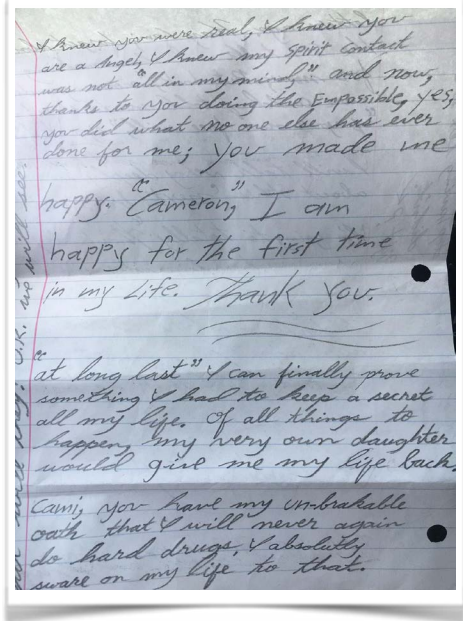 I knew you were real, I knew you
are a Angel, I knew my spirit contact
was not "all in my mind," and now,
thanks to you doing the Empassible, yes,
you did what no one else has ever
done for me; you made me
happy. "Cameron," I am
happy for the first time
in my Life. Thank you.
"at long last" I can finally prove
something I had to keep a secret
all my life. Of all things to
happen, my very own daughter
would give me my life back.
Cami, you have my un-brakable
oath that I will never again
do hard drugs, I absolutly
sware on my life to that.
will they? O.K. we will see.